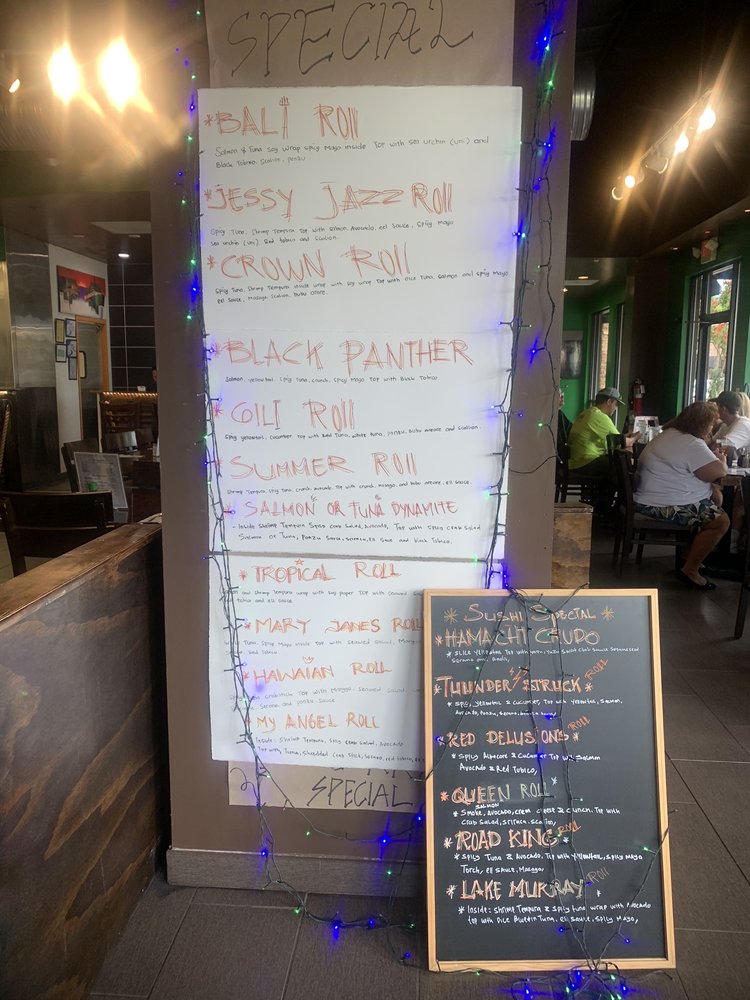 SPECIAL
*BALI ROll
Salmon & Tuna soy wrap spicy Mayo inside Top with sea urchin (uni) and
Black Tobico, Scalion, ponzu
*JESSY JAZZ ROll
Spicy Tuna, Shrimp Tempura Top with salmon, Avocado, eel sauce, Spicy Mayo
sea urchin (uni) Red tobico and scalion.
*CROWN ROll
Spicy Tuna, Shrimp Tempura inside wrap with soy wrap Top with dice Tuna, Salmon and Spicy Mayo
eel sauce, Masago, Scalion, bubu arare.
*BLACK PANTHER
Salmon, yellowtail, Spicy Tuna, crunch, Spicy Mayo Top with Black Tobico
*GILI ROll
Spicy yellowtail, cucumber Top with Red Tuna, white tuna, ponzu, Bubu arare and scalion.
*SUMMER ROll
Shrimp Tempura, Spicy Tuna, crunch, avocado, Top with crunch, masago, and bubu arare, ell sauce.
*SALMON OR TUNA DYNAMITE
- Inside Shrimp Tempura Spicy crab Salad, Avocado, Top with Spicy crab Salad
Salmon or Tuna, Ponzu Sauce, Eel Sauce and black Tobico.
*TROPICAL ROLL
and shrimp Tempura wrap with soy paper Top with
tobico and ell sauce
*MARY JANES ROLL
Tuna, Spicy Mayo inside Top with seaweed salad,
Red Tobico
*HAWAIAN ROLL
crabstick Top with Mango, seaweed salad
and ponzu Sauce
*MY ANGEL ROLL
Inside: Shrimp Tempura, Spicy crab Salad, Avocado
Top with Tuna, Shredded Crab stick, red tobico
SPECIAL
*SUSHI SPECIAL*
*HAMACHI CRUDO
* SLICE Yellowtail Top with
THUNDER STRUCK ROLL*
* Spicy Yellowtail & Cucumber, Top with Yellowtail, Salmon,
Avocado, Ponzu,
*RED DELUSIONS ROLL*
* Spicy Albacore & Cucumber Top with Salmon
Avocado & Red Tobico,
*QUEEN ROLL*
SALMON
* Smoke, Avocado, crem cheese & crunch. Top with
crab Salad, sriraca, scalion,
*ROAD KING ROLL
* Spicy Tuna & Avocado, Top with Yellowtail, Spicy Mayo
Torch, ell sauce, Masago,
*LAKE MURRAY ROLL
* Inside: Shrimp Tempura & Spicy Tuna wrap with Avocado
Top with Dice Bluefin Tuna, Ell Sauce, Spicy Mayo,